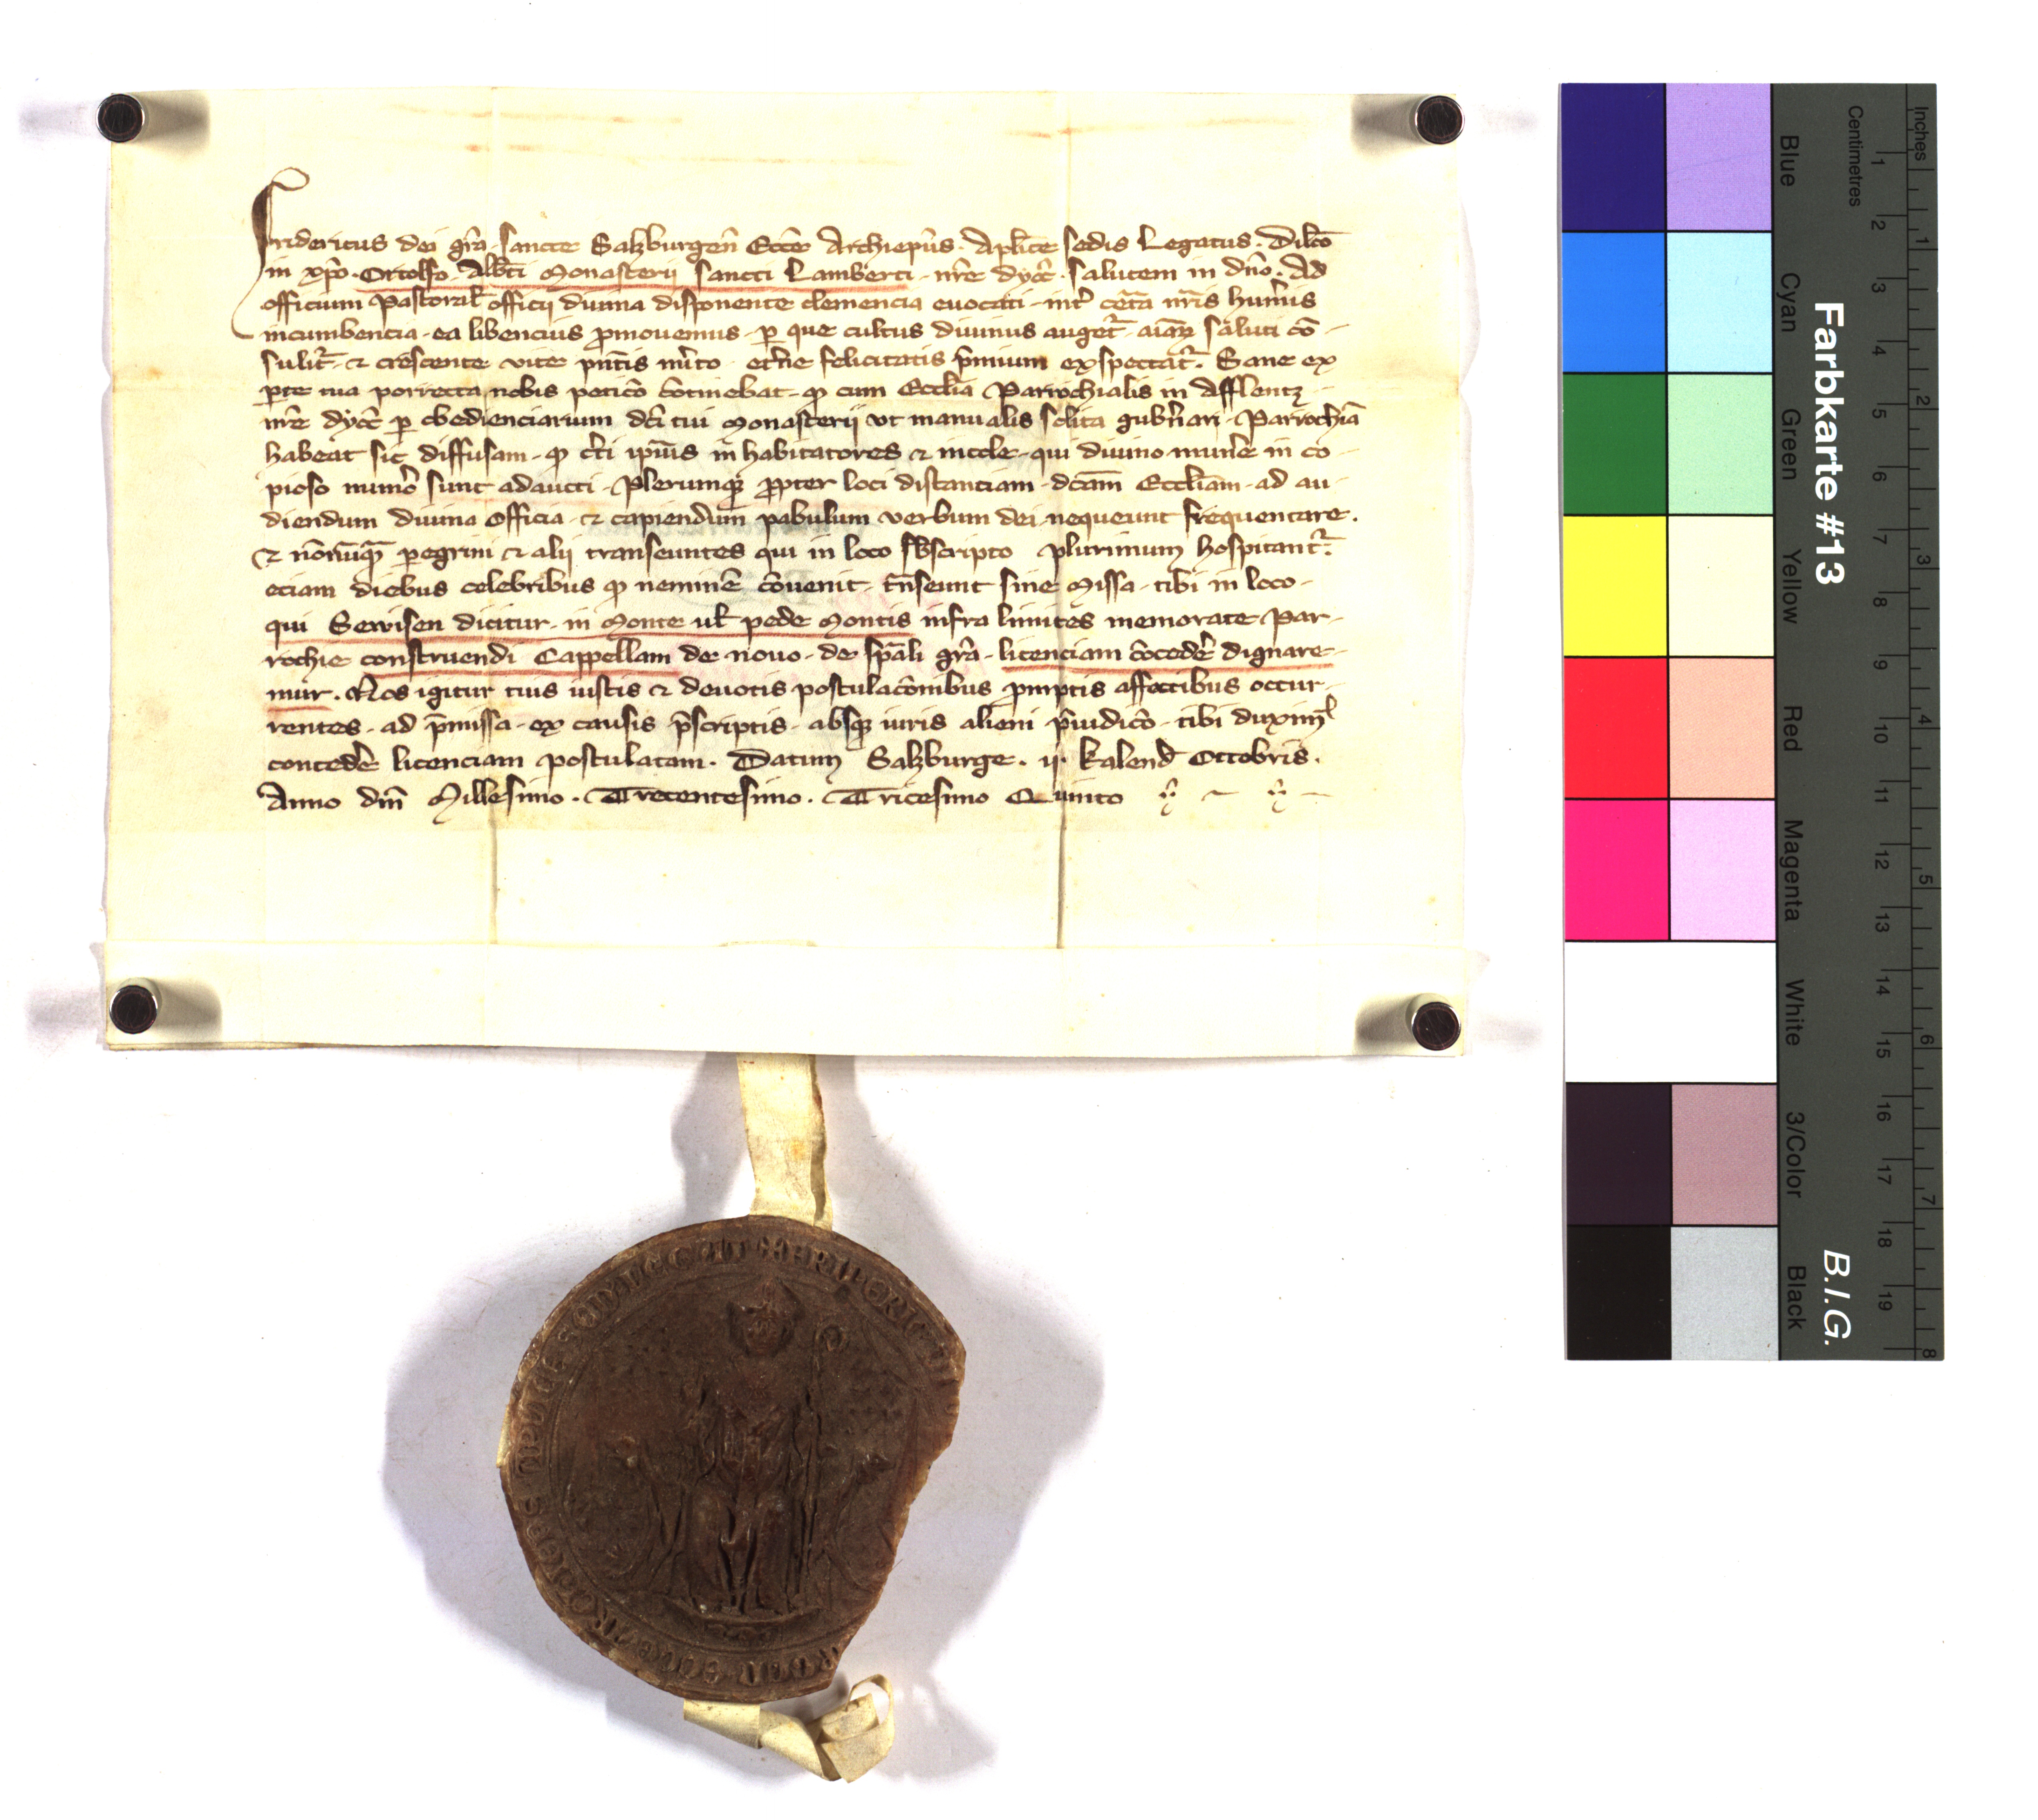 Fridericus dei gr̄a. sancte Salzburgen̄ Eccē Archiep̄us. Apl̄ice sedis Legatus. Dilc̄o
in xp̄o. Ortolfo. Abb̄ti Monasterij sancti Lamberti. nr̄e dyoc̄. salutem in dn̄o. Ad
officium Pastoral̄ officij diuina disponente clemencia euocati. int̄ cet̄a nr̄is hum̄is
incumbencia. ea libencius ꝓmouemus. ꝑ que cultus diuinus auget̄. aīaꝝ saluti cō-
sulit̄. & crescente vite pn̄tis m̄ito. et̄ne felicitatis p̄mium exspectat̄. Sane ex
ꝑte tua porrecta nobis peticō ɔtinebat. ꝙ cum Eccl̄ia Parrochialis in Afflentz
nr̄e dyoc̄ ꝑ obedienciarium dc̄i tui Monasterij vt manualis solita gub̄nari. Parrochiā
habeat sic diffusam. ꝙ c̄ti ip̄ius inhabitatores & incole. qui diuino mun̄e in co-
pioso num̄o sunt adaucti. Plerumqꝫ ꝓpter loci distanciam. dc̄am Eccl̄iam. ad au-
diendum diuina officia. & capiendum pabulum verbum dei. nequeunt frequentare.
& nōnūqꝫ ꝑegrini & alij transeuntes qui in loco sb̄scripto plurimum hospitant̄.
eciam diebus celebribus ꝙ neminē ɔuenit. t̄nseunt sine Missa. tibi in loco.
qui Sewisen dicitur. in Monte ul̄ pede Montis infra limites memorate Par-
rochie construendi Cappellam de nouo. de sp̄ali gr̄a. licenciam ɔceder̄ dignare-
mur. Nos igitur tuis iustis & deuotis postulacōnibus ꝓmptis affectibus occur-
rentes. ad p̄missa. ex causis p̄scriptis. absqꝫ iuris alieni p̄iudicō. tibi duxim̄
conceder̄ licenciam postulatam. Datum Salzburge. ij. Kalend̄ Octobris.
Anno dn̄i Millesimo. Trecentesimo. Tricesimo Quinto
Farbkarte #13
B.I.G.
Inches
Centimetres
1 2 3 4 5 6 7 8 9 10 11 12 13 14 15 16 17 18 19
1 2 3 4 5 6 7 8
Blue
Cyan
Green
Yellow
Red
Magenta
White
3/Color
Black